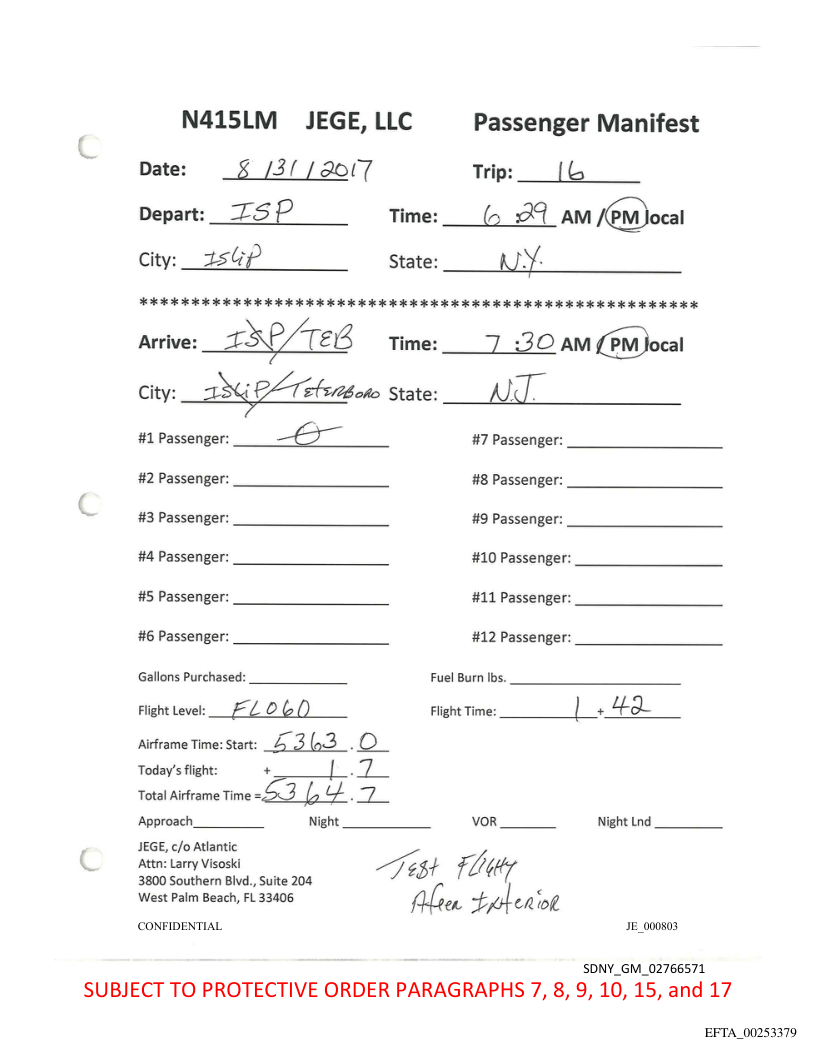 N415LM JEGE, LLC Passenger Manifest
Date: 8/31/2017 Trip: 16
Depart: ISP Time: 6:29 AM / PM local
City: ISLIP State: N.Y.
******************************************************
Arrive: ISP/TEB Time: 7:30 AM / PM local
City: ISLIP/TETERBORO State: N.J.
#1 Passenger: 0 #7 Passenger:
#2 Passenger: #8 Passenger:
#3 Passenger: #9 Passenger:
#4 Passenger: #10 Passenger:
#5 Passenger: #11 Passenger:
#6 Passenger: #12 Passenger:
Gallons Purchased: Fuel Burn lbs.
Flight Level: FL060 Flight Time: 1 + 42
Airframe Time: Start: 5363.0
Today's flight: + 1.7
Total Airframe Time = 5364.7
Approach Night VOR Night Lnd
JEGE, c/o Atlantic
Attn: Larry Visoski
3800 Southern Blvd., Suite 204
West Palm Beach, FL 33406
TEST FLIGHT
AFTER INTERIOR
CONFIDENTIAL JE_000803
SDNY_GM_02766571
SUBJECT TO PROTECTIVE ORDER PARAGRAPHS 7, 8, 9, 10, 15, and 17
EFTA_00253379